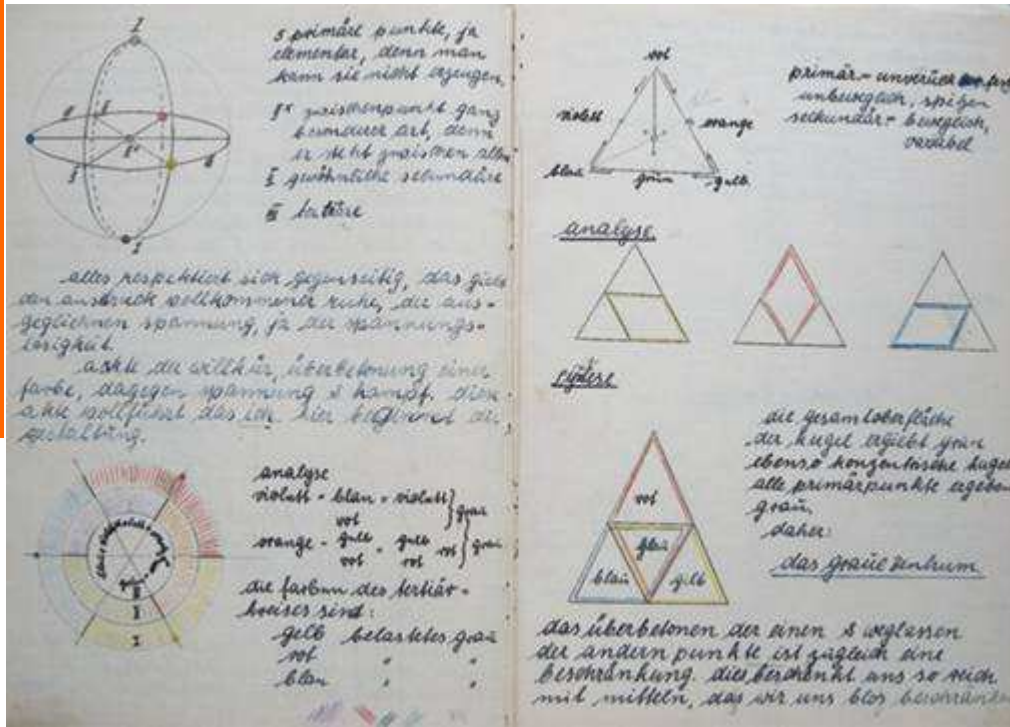 I
5 primäre punkte, ja
elementar, denn man
kann sie nicht erzeugen,
zwischenpunkt ganz
besonderer art, denn
er steht zwischen allen
gewöhnliche sekundäre
III tertiäre
alles respektiert sich gegenseitig, das giebt
den ausdruck vollkommener ruhe, der aus-
geglichnen spannung, ja der spannungs-
losigkeit.
akte der willkür, überbetonung einer
farbe, dagegen spannung & kampf. diese
akte vollführt das ich. hier beginnt die
gestaltung.
analyse
violett = blau = violett } grau
rot
orange = gelb = gelb rot } grau
rot rot
die farben des tertiär-
kreises sind:
gelb belastetes grau
rot " "
blau " "
III
II
I
rot
violett orange
blau grün gelb
primär = unverrück
unbeweglich, spitzen
sekundär = beweglich,
variabel
analyse
sÿtese
rot
grau
blau gelb
die gesamtoberfläche
der kugel ergiebt grau
ebenso konzentrische kugel
alle primärpunkte ergeben
grau
daher:
das graue zentrum
das überbetonen der einen & weglassen
der andern punkte ist zugleich eine
beschränkung. dies beschenkt uns so reich
mit mitteln, das wir uns blos beschränken